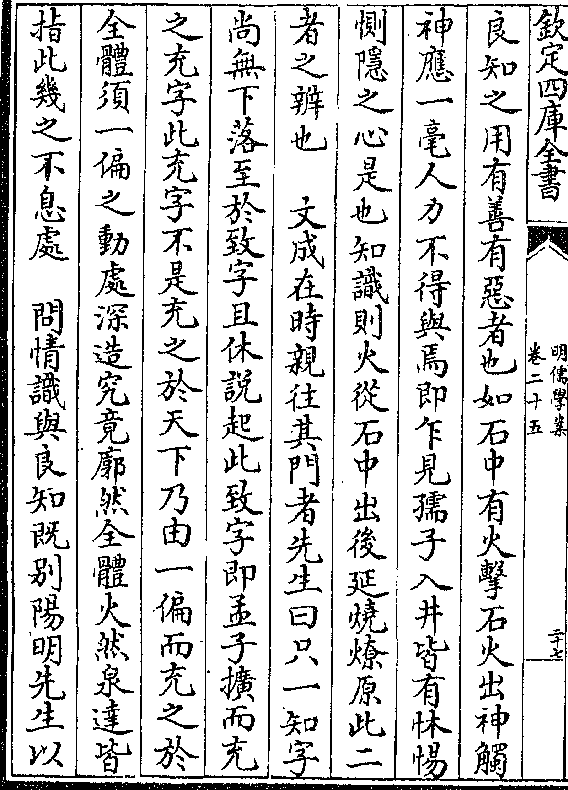 欽定四庫全書
明儒學案
卷二十五
二十七
良知之用有善有惡者也如石中有火擊石火出神觸
神應一毫人力不得與焉即乍見孺子入井皆有怵惕
惻隱之心是也知識則火從石中出後延燒燎原此二
者之辨也　文成在時親往其門者先生曰只一知字
尚無下落至於致字且休說起此致字即孟子擴而充
之充字此充字不是充之於天下乃由一偏而充之於
全體須一偏之動處深造究竟廓然全體火然泉達皆
指此幾之不息處　問情識與良知既別陽明先生以